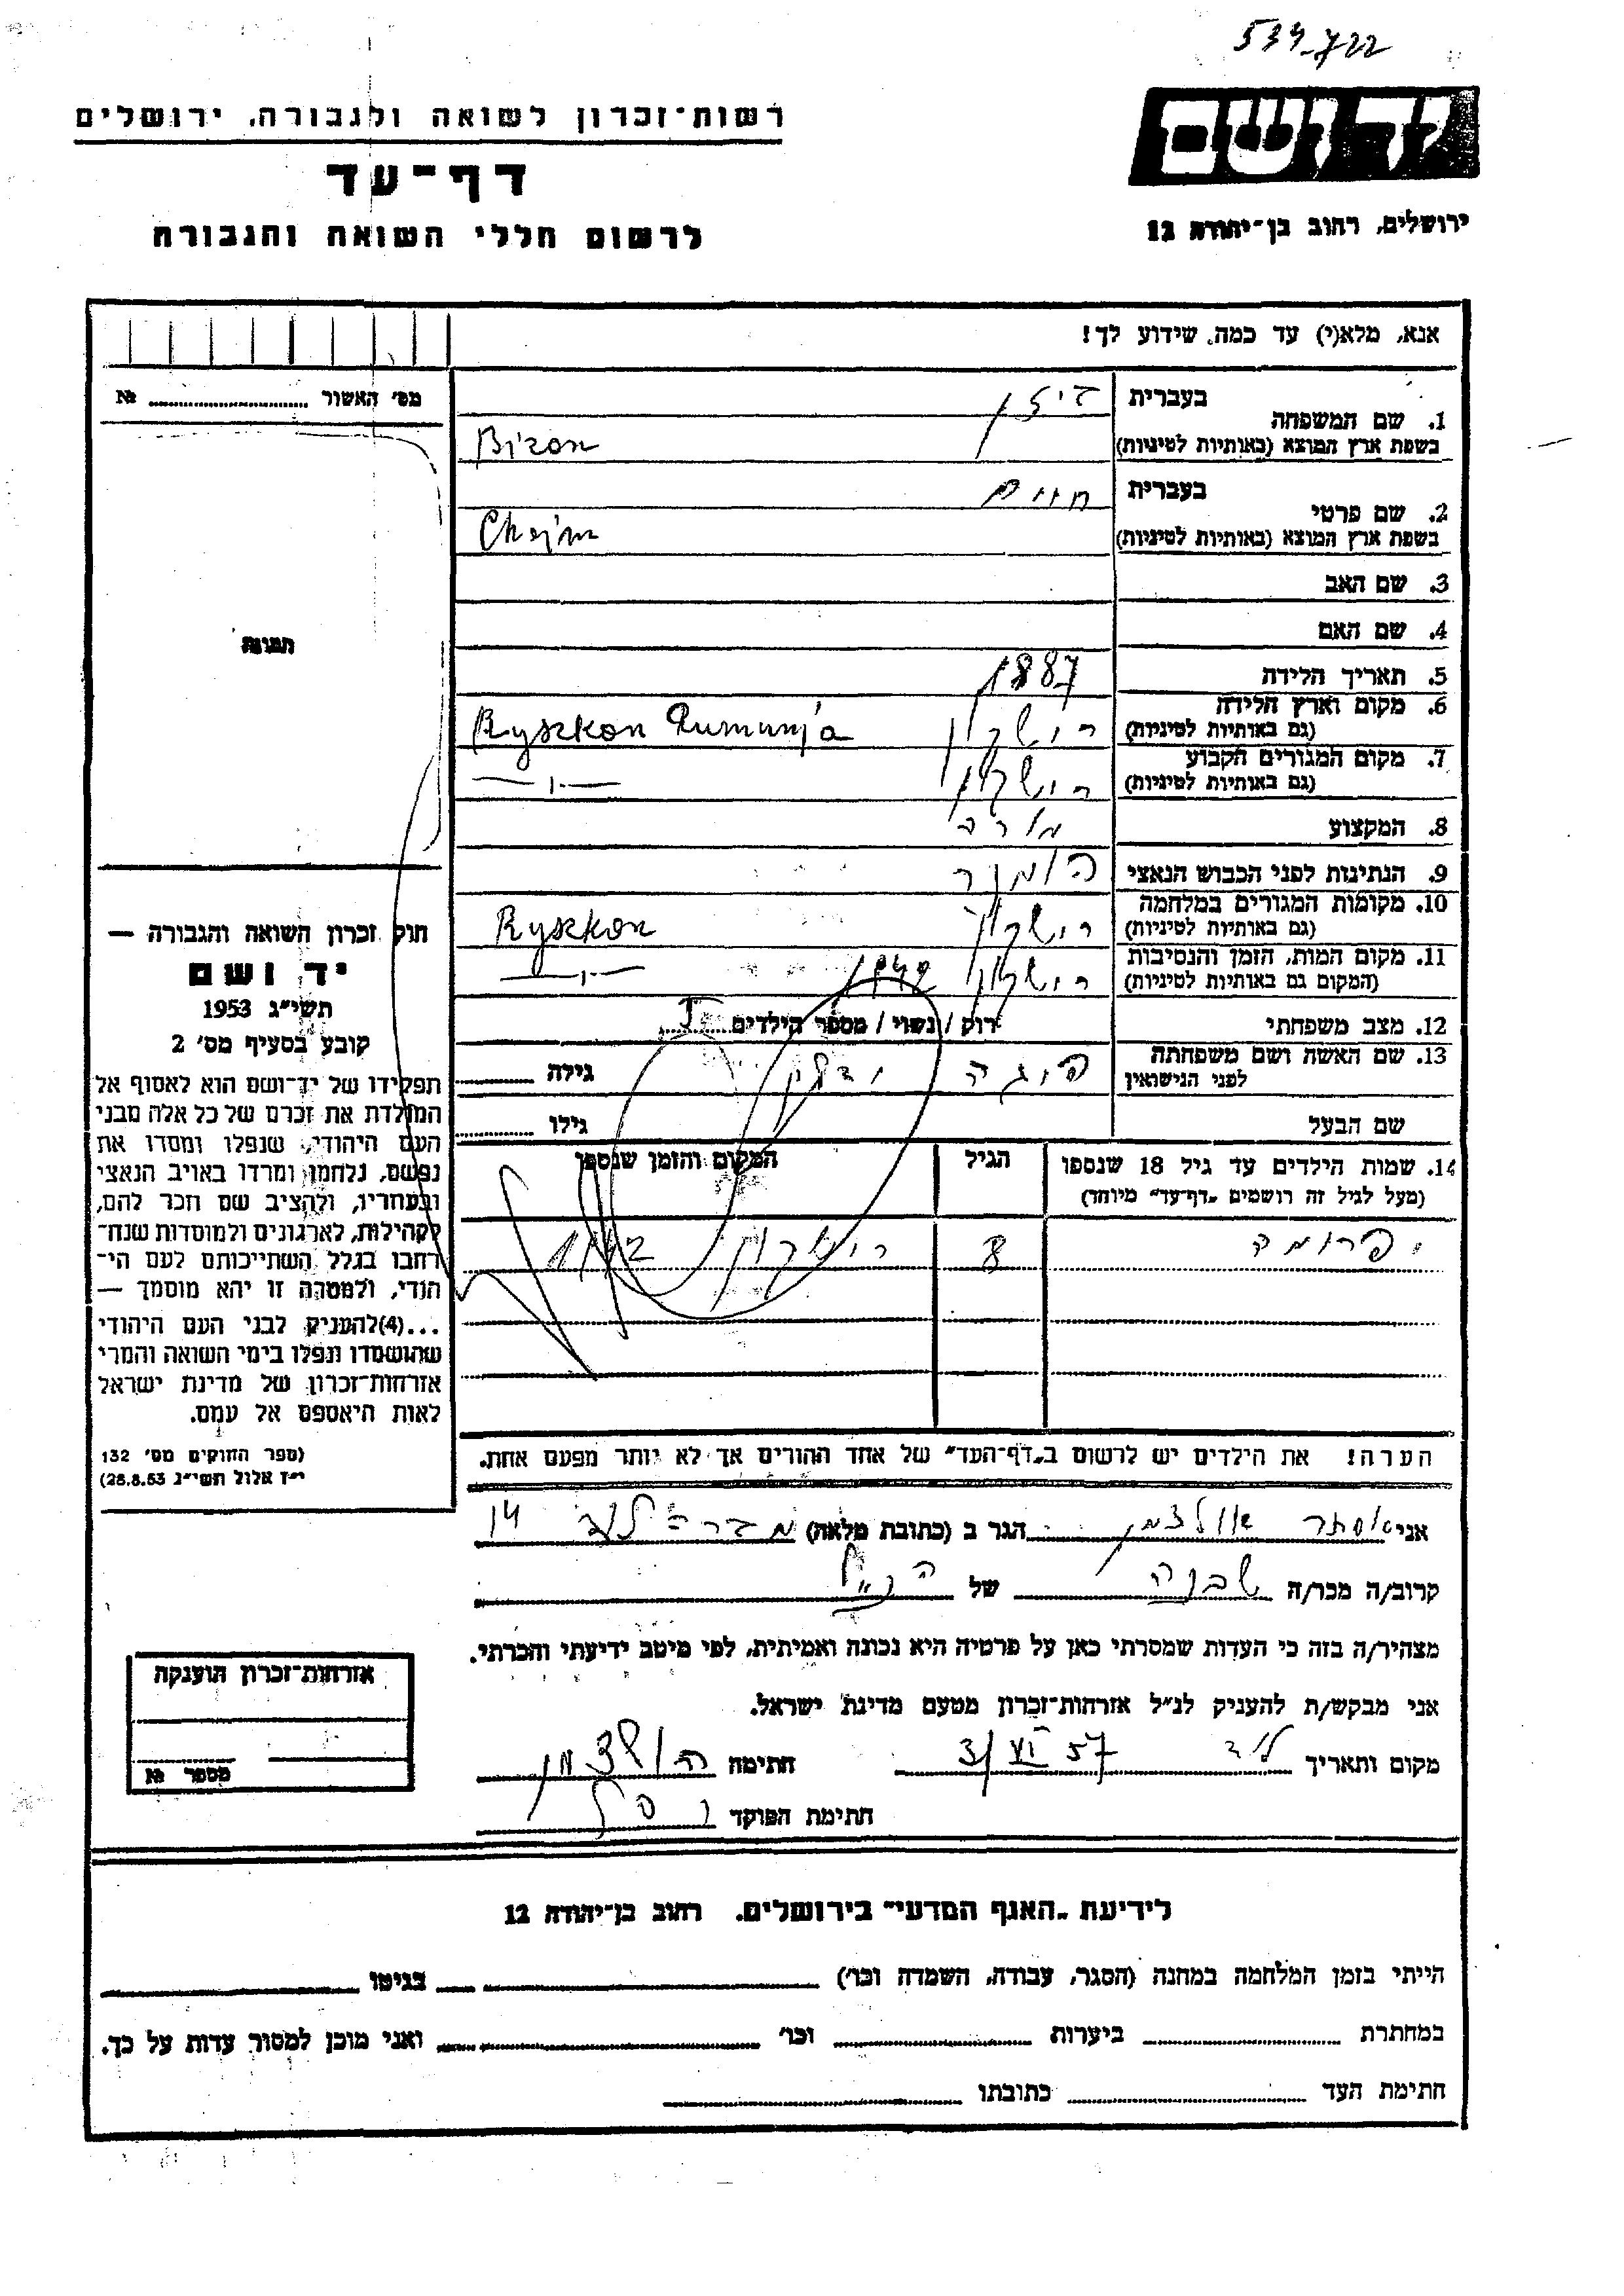 534-722
יד ושם
ירושלים, רחוב בן-יהודה 12
רשות-זכרון לשואה ולגבורה, ירושלים
דף-עד
לרשום חללי השואה והגבורה
אנא, מלא(י) עד כמה שידוע לך!
מס׳ האשור № 
תמונה
1. שם המשפחה
בעברית ביזון
בשפת ארץ המוצא (באותיות לטיניות) Bizon
2. שם פרטי
בעברית חיים
בשפת ארץ המוצא (באותיות לטיניות) Chejm
3. שם האב
4. שם האם
5. תאריך הלידה 1887
6. מקום וארץ הלידה
(גם באותיות לטיניות) רישקון Ryszkon Rumunja
7. מקום המגורים הקבוע
(גם באותיות לטיניות) רישקון —״—
8. המקצוע מורה
9. הנתינות לפני הכבוש הנאצי
10. מקומות המגורים במלחמה
(גם באותיות לטיניות) רישקון Ryszkon
11. מקום המות, הזמן והנסיבות
(המקום גם באותיות לטיניות) רישקון 1942 —״—
12. מצב משפחתי רוק / נשוי / מספר הילדים I
13. שם האשה ושם משפחתה
לפני הנישואין גילה
שם הבעל גילו
14. שמות הילדים עד גיל 18 שנספו הגיל המקום והזמן שנספו
(מעל לגיל זה רושמים „דף-עד״ מיוחד)
פרומה 8 רישקון 1942
הערה! את הילדים יש לרשום ב„דף-העד״ של אחד ההורים אך לא יותר מפעם אחת.
חוק זכרון השואה והגבורה —
יד ושם
תשי״ג 1953
קובע בסעיף מס׳ 2
תפקידו של יד-ושם הוא לאסוף אל
המולדת את זכרם של כל אלה מבני
העם היהודי, שנפלו ומסרו את
נפשם, נלחמו ומרדו באויב הנאצי
ובעוזריו, ולהציב שם וזכר להם,
לקהילות, לארגונים ולמוסדות שנח-
רבו בגלל השתייכותם לעם הי-
הודי, ולמטרה זו יהא מוסמך —
...(4) להעניק לבני העם היהודי
שהושמדו ונפלו בימי השואה והמרי
אזרחות-זכרון של מדינת ישראל
לאות היאספם אל עמם.
(ספר החוקים מס׳ 132
י״ז אלול תשי״ג 28.8.53)
אני אסתר הולצמן הגר ב (כתובת מלאה) 14
קרוב/ה מכר/ה שכנה של הנ״ל
מצהיר/ה בזה כי העדות שמסרתי כאן על פרטיה היא נכונה ואמיתית, לפי מיטב ידיעתי והכרתי.
אני מבקש/ת להעניק לנ״ל אזרחות-זכרון מטעם מדינת ישראל.
מקום ותאריך לוד 3/VI 57 חתימה הולצמן
חתימת הפוקד
אזרחות-זכרון הוענקה
מספר №
לידיעת „האגף המדעי״ בירושלים, רחוב בן-יהודה 12
הייתי בזמן המלחמה במחנה (הסגר, עבודה, השמדה וכו׳) בגיטו
במחתרת ביערות וכו׳ ואני מוכן למסור עדות על כך.
חתימת העד כתובתו